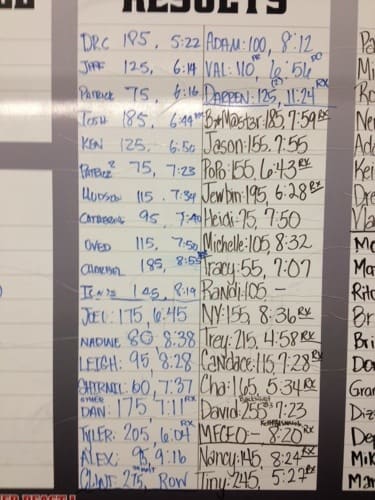 RESULTS
DRC 195, 5:22
JEFF 125, 6:14
PATRICK 75, 6:16
JOSH 185, 6:44
KEN 125, 6:50
PATRICK 2 75, 7:23
HUDSON 115, 7:34
CATHERINE 95, 7:40
OVED 115, 7:50
185, 8:55
145, 8:19
JOEL: 175, 6:45
NADINE 80, 8:38
LEIGH: 95, 8:28
60, 7:37
OTHER DAN: 175, 7:11 RX
TYLER: 205, 6:04 RX
ALEX: 95, 9:16
CLINT: 275, ROW
ADAM: 100, 8:12
VAL: 110, 6:56
DARREN: 125, 11:24 RX
B*M@star: 185, 7:59 RX
Jason: 155, 7:55
PoPo: 155, 6:43 RX
Jewbin: 195, 6:28 RX
Heidi: 75, 7:50
Michelle: 105, 8:32
Tracy: 55, 7:07
Randi: 105, -
NY: 155, 8:36 RX
Trey: 215, 4:58 RX
Candace: 115, 7:28 RX
Cha: 165, 5:34 RX
David: 255, 7:23
MECEO: - 8:20 RX
Nancy: 145, 8:24 RX
Tiny: 245, 5:27 RX